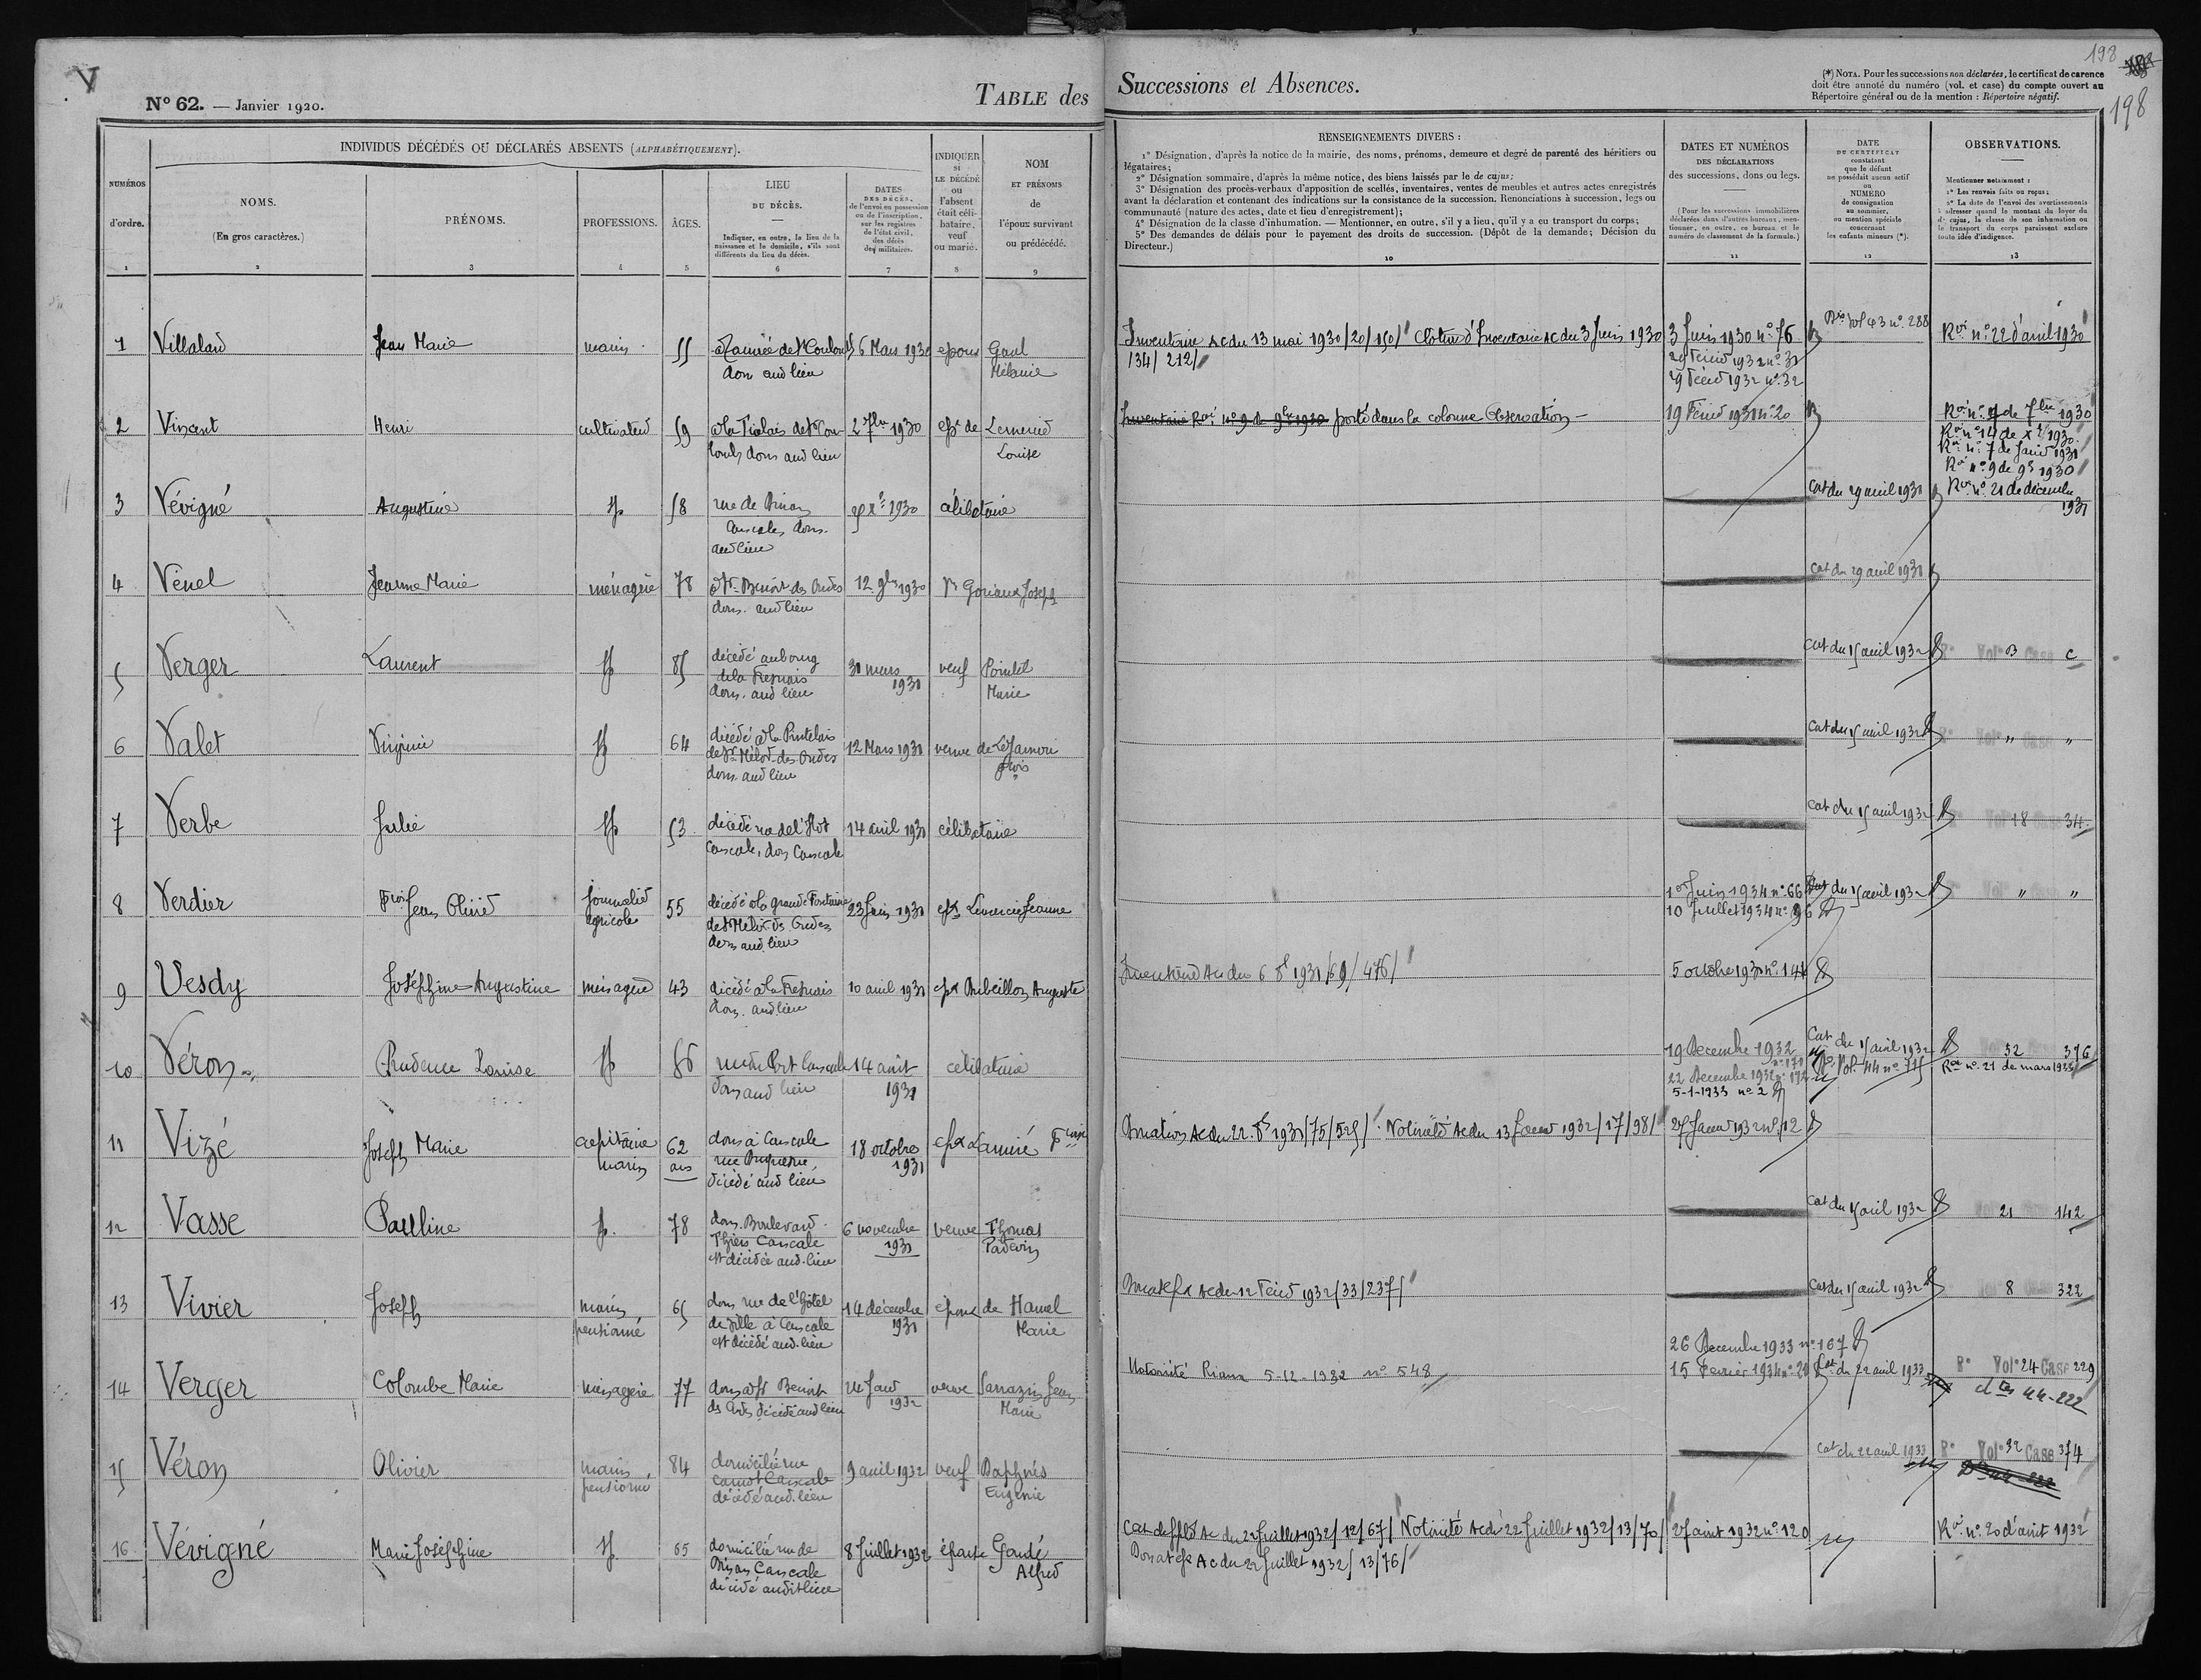 V
N° 62. — Janvier 1920.
TABLE des
Successions et Absences.
(*) NOTA. Pour les successions non déclarées, le certificat de carence
doit être annoté du numéro (vol. et case) du compte ouvert au
Répertoire général ou de la mention : Répertoire négatif.
198
198
INDIVIDUS DÉCÉDÉS OU DÉCLARÉS ABSENTS (ALPHABÉTIQUEMENT).
NUMÉROS
d'ordre.
1
NOMS.
(En gros caractères.)
2
PRÉNOMS.
3
PROFESSIONS.
4
ÂGES.
5
LIEU
DU DÉCÈS.
Indiquer, en outre, le lieu de la
naissance et le domicile, s'ils sont
différents du lieu du décès.
6
DATES
DES DÉCÈS,
de l'envoi en possession
ou de l'inscription
sur les registres
de l'état civil
des décès
des militaires.
7
INDIQUER
SI
LE DÉCÉDÉ
ou
l'absent
était céli-
bataire,
veuf
ou marié.
8
NOM
ET PRÉNOMS
de
l'époux survivant
ou prédécédé.
9
RENSEIGNEMENTS DIVERS :
1° Désignation, d'après la notice de la mairie, des noms, prénoms, demeure et degré de parenté des héritiers ou
légataires;
2° Désignation sommaire, d'après la même notice, des biens laissés par le de cujus;
3° Désignation des procès-verbaux d'apposition de scellés, inventaires, ventes de meubles et autres actes enregistrés
avant la déclaration et contenant des indications sur la consistance de la succession. Renonciations à succession, legs ou
communauté (nature des actes, date et lieu d'enregistrement);
4° Désignation de la classe d'inhumation. — Mentionner, en outre, s'il y a lieu, qu'il y a eu transport du corps;
5° Des demandes de délais pour le payement des droits de succession. (Dépôt de la demande; Décision du
Directeur.)
10
DATES ET NUMÉROS
DES DÉCLARATIONS
des successions, dons ou legs.
(Pour les successions immobilières
déclarées dans d'autres bureaux, men-
tionner, en outre, ce bureau et le
numéro de classement de la formule.)
11
DATE
DU CERTIFICAT
constatant
que le défunt
ne possédait aucun actif
ou
NUMÉRO
de consignation
au sommier,
ou mention spéciale
concernant
les enfants mineurs (*).
12
OBSERVATIONS.
Mentionner notamment :
1° Les renvois faits ou reçus;
2° La date de l'envoi des avertissements
à adresser quand le montant du loyer du
de cujus, la classe de son inhumation ou
le transport du corps paraissent exclure
toute idée d'indigence.
13
1 Villalard Jean Marie marin 55 6 Mars 1930 époux Gaul
dom aud lieu Mélanie
Inventaire Ac du 13 mai 1930/20/150/ Cloture d'Inventaire Ac du 3 Juin 1930
134/ 212/
3 Juin 1930 n° 76
29 Février 1932 n° 31
29 Février 1932 n° 32
Vol 43 n° 288
Roi n° 22 d'avril 1930
2 Vincent Henri cultivateur 59 2 7bre 1930 ép. de Lemercier
dom aud lieu Louise
Inventaire Roi n° 9 de 9bre 1930 porté dans la colonne Observation —
19 Février 1931 n° 20
Roi n° 7 de 7bre 1930
Roi n° 14 de Xbre 1930
Roi n° 7 de Janv 1931
Roi n° 9 de 9b 1930
Roi n° 21 de décembre
1931
3 Vévigné Augustine sp 58 rue de
Cancale, dom.
aud lieu
célibataire
Cat du 29 avril 1931
4 Venel Jeanne Marie ménagère 78 St Benoit des Ondes 12 9bre 1930 Joseph
dom. aud lieu
Cat du 29 avril 1931
5 Verger Laurent sp 85 décédé au bourg
de la Fresnais
dom. aud lieu
30 mars
1931
veuf Pointel
Marie
Cat du 15 avril 1932 Vol B Case C
6 Valet Virginie sp 64 décédé
de St Méloir des Ondes
dom. aud lieu
12 Mars 1931 veuve de
Cat du 15 avril 1932 Vol " Case "
7 Verbe Julie sp 53 décédé rue de l'
Cancale, dom Cancale
14 avril 1931 célibataire
Cat du 15 avril 1932 Vol 18 Case 34
8 Verdier Frois Jean Olivier journalier
agricole
55 décédé à la grande Fontaine
de St Méloir ds Ondes
dom aud lieu
23 Juin 1931 epx Lemercier Jeanne
1er Juin 1934 n° 66
10 Juillet 1934 n° 96
Cat du 15 avril 1932 Vol " Case "
9 Vesdy Joséphine Augustine ménagère 43 décédé à la Fresnais
dom. aud lieu
10 avril 1931 epx Auguste
Inventaire Ac du 6 8b 1931/69/476/
5 octobre 1931 n° 144
10 Véron Prudence Louise sp 86 rue du Port Cancale
dom aud lieu
14 août
1931
célibataire
19 Decembre 1932
n° 171
22 Decembre 1932 n° 172
5-1-1933 n° 2
Cat du 15 avril 1932
Vol. 44 n° 715
52 376
Roi n° 21 de mars 1933
11 Vizé Joseph Marie capitaine
marin
62
ans
dom à Cancale
rue Duquesne,
décédé aud lieu
18 octobre
1931
epx Lamiré Fçoise
Donation Ac du 22 8b 1931/75/525/ Notoriété Ac du 13 Janvier 1932/17/98/
27 Janv 1932 n° 12
12 Vasse Paulline sp. 78 dom. Boulevard
Thiers Cancale
est décédée aud. lieu
6 novembre
1931
veuve Thomas
Patevin
Cat du 15 avril 1932 21 142
13 Vivier Joseph marin
pensionné
65 dom rue de l'Hôtel
de Ville à Cancale
est décédé aud. lieu
14 décembre
1931
époux de Hamel
Marie
Donat epx Ac du 12 Févr 1932/33/237/
Cat du 15 avril 1932 8 322
14 Verger Colombe Marie ménagère 77 dom à St Benoit
ds Ondes décédé aud lieu
24 Janv
1932
veuve Sarrazin Jean
Marie
Notoriété Riaux 5-12-1932 n° 548
26 Decembre 1933 n° 167
15 Fevrier 1934 n° 20
Cat du 22 avril 1933
R° Vol° 24 Case 229
44-222
15 Véron Olivier marin
pensionné
84 domicilié rue
Carnot Cancale
décédé aud. lieu
9 avril 1932 veuf Daphnés
Eugénie
Cat du 22 avril 1933
R° Vol° 32 Case 374
16 Vévigné Marie Joséphine sp. 65 domicilié rue de
Cancale
décédé audit lieu
8 Juillet 1932 épouse Gaudé
Alfred
Cat de ppté Ac du 22 Juillet 1932/12/67/ Notoriété Ac du 22 Juillet 1932/13/70/
Donat epx Ac du 22 Juillet 1932/13/76/
27 août 1932 n° 120
Roi n° 20 d'août 1932